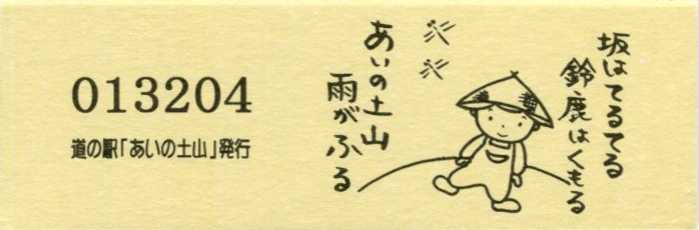 013204
道の駅「あいの土山」発行
坂はてるてる
鈴鹿はくもる
あいの土山
雨がふる